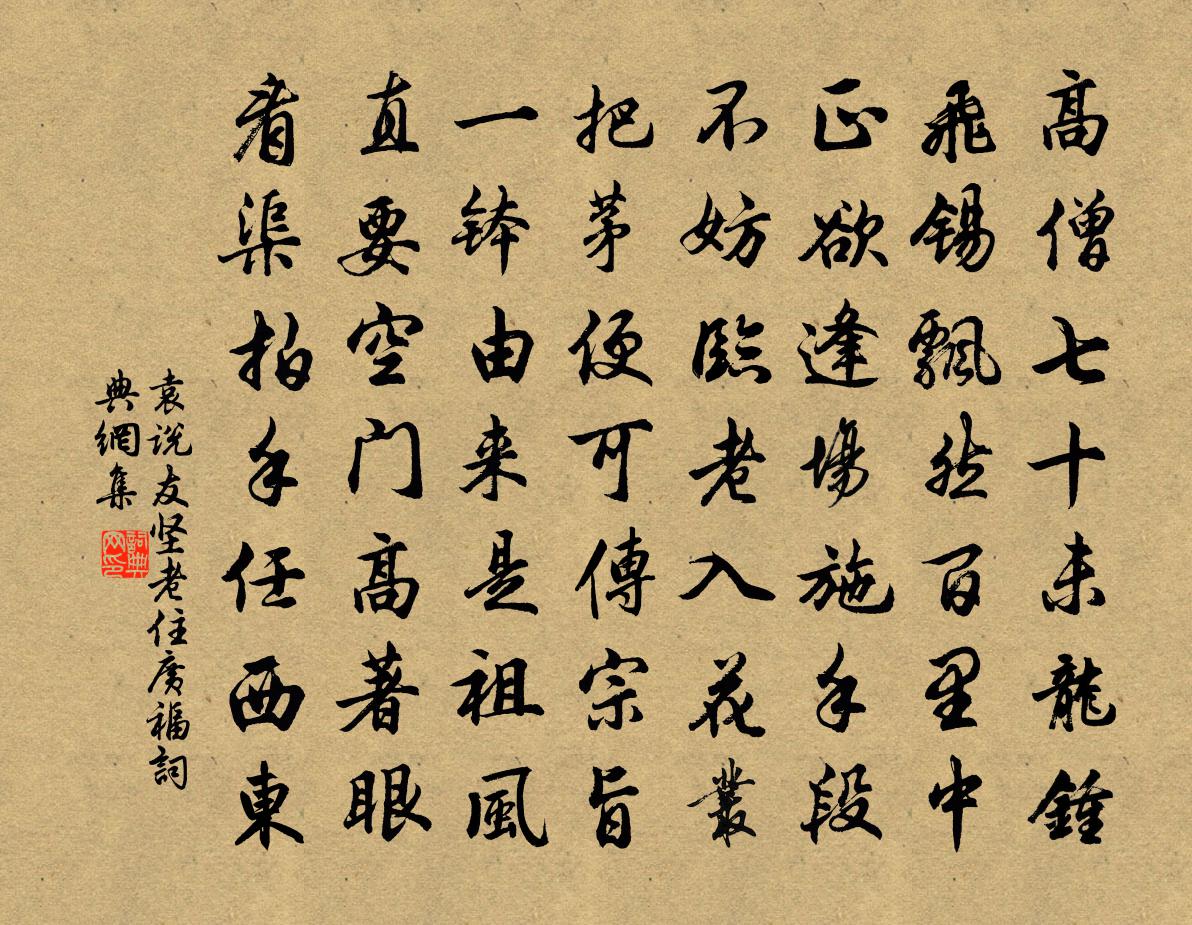 高僧七十未龍鍾
飛錫飄然百里中
正欲逢場施手段
不妨臨老入花叢
把茅便可傳宗旨
一鉢由来是祖風
直要空门高著眼
看渠拍手任西東
袁説友坚老住廣福詞
典網集
詞典
网印